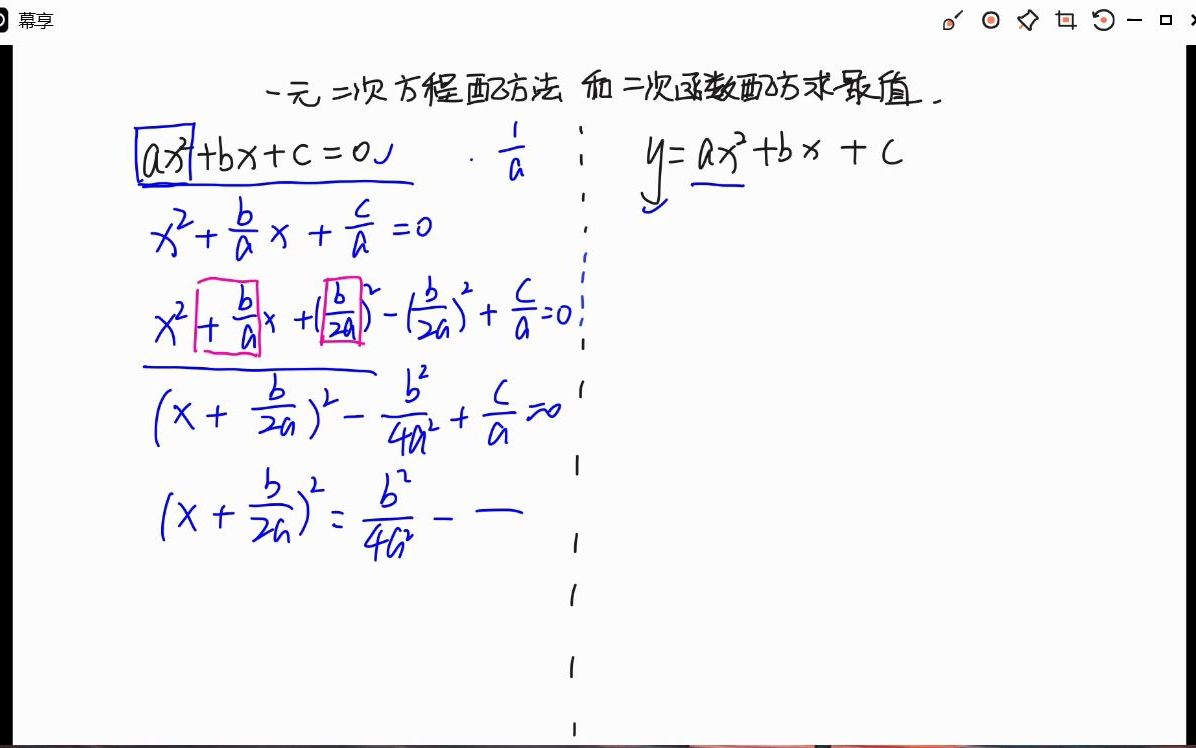 幕享
一元二次方程配方法 和 二次函数配方求最值.
ax²+bx+c=0
· 1/a
y=ax²+bx+c
x²+b/a x+c/a=0
x²+b/a x+(b/2a)²-(b/2a)²+c/a=0
(x+b/2a)²-b²/4a²+c/a=0
(x+b/2a)²=b²/4a²-